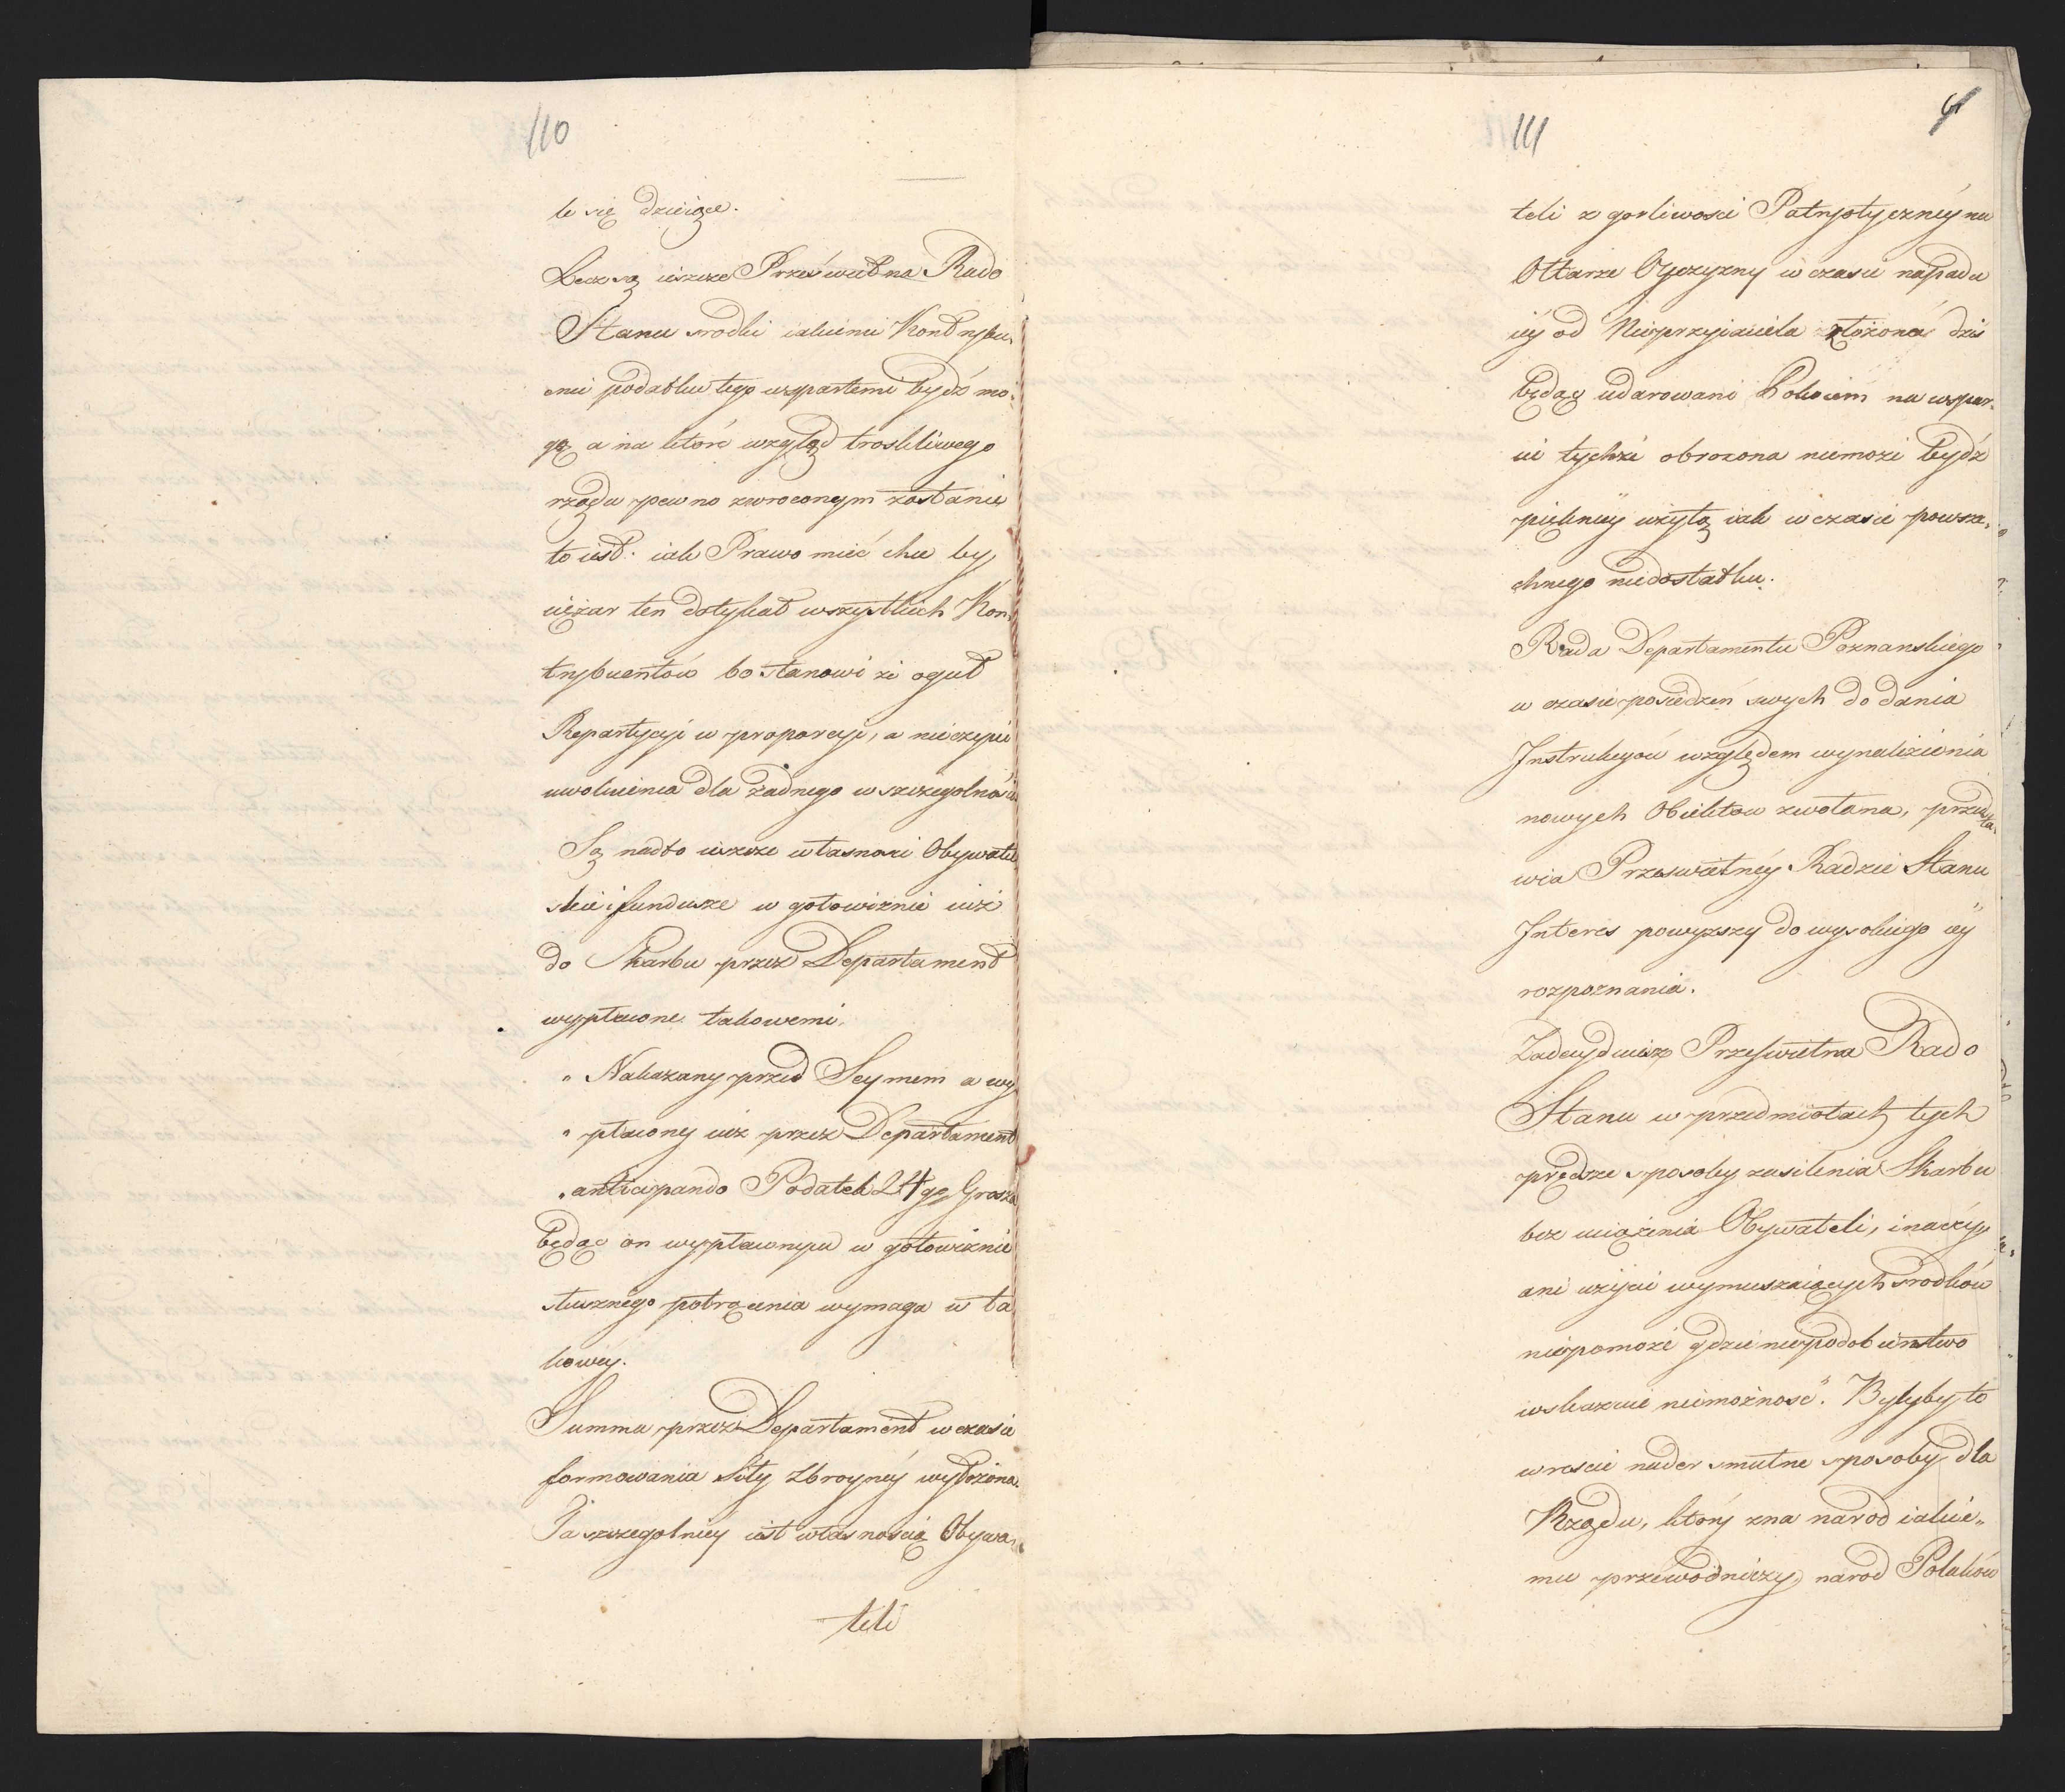 110
le się dzieiące.
Lecz są ieszcze Prześwietna Rado
Stanu srodki iakiemi Kontrybu,
enci podatku tego wspartemi bydź mo,
gą a na które wzgląd troskliwego
rządu pewno zwroconym zostanie
to iest: iak Prawo mieć chce by
ciężar ten dotykał wszystkich Kon,
trybuentów bo stanowi że oguł
Repartycyi w proporcyi, a nie czyni
uwolnienia dla żadnego w szczegolności
Są nadto ieszcze własnosci Obywatel
skie i fundusze w gotowiznie iuż
do Skarbu przez Departament
wypłacone takowemi.
„ Nakazany przed Seymem a wy
„ płacony iuż przez Departament
„ anticipando Podatek 24go Grosza
będąc on wypłaconym w gotowiznie
słusznego potrącenia wymaga w ta
kowéy.
Summa przez Departament w czasie
formowania Siły Zbroynéy wyłożona.
Ta szczegolniéy iest własnoscią Obywa,
teli
111
teli z gorliwosci Patryotycznéy na
Ołtarze Oyczyzny w czasie napadu
iéy od Nieprzyiaciela złożona dzis
będąc udarowani Pokoiem na wspar,
cie tychże obrocona niemoże bydź
pięknieÿ użytą iak w czasie powsze,
chnego niedostatku.
Rada Departamentu Poznanskiego
w czasie posiedzeń swych do dania
Instrukcyów względem wynaleźienia
nowych Obiektow zwołana, przedsta,
wia Przeswietnéy Radzie Stanu
Interes powyższy do wysokiego iéÿ
rozpoznania.
Zadecyduiesz Przeswietna Rado
Stanu w przedmiotach tych
prędsze sposoby zasilenia Skarbu
bez uciążenia Obywateli, inaczéy
ani użycie wymuszaiących srodków
niepomoże gdzie niepodobienstwo
wskazuie niemożnosć. Byłyby to
wrescie nader smutne sposoby dla
Rządu, który zna naród iakie„
mu przewodniczy, narod Polaków